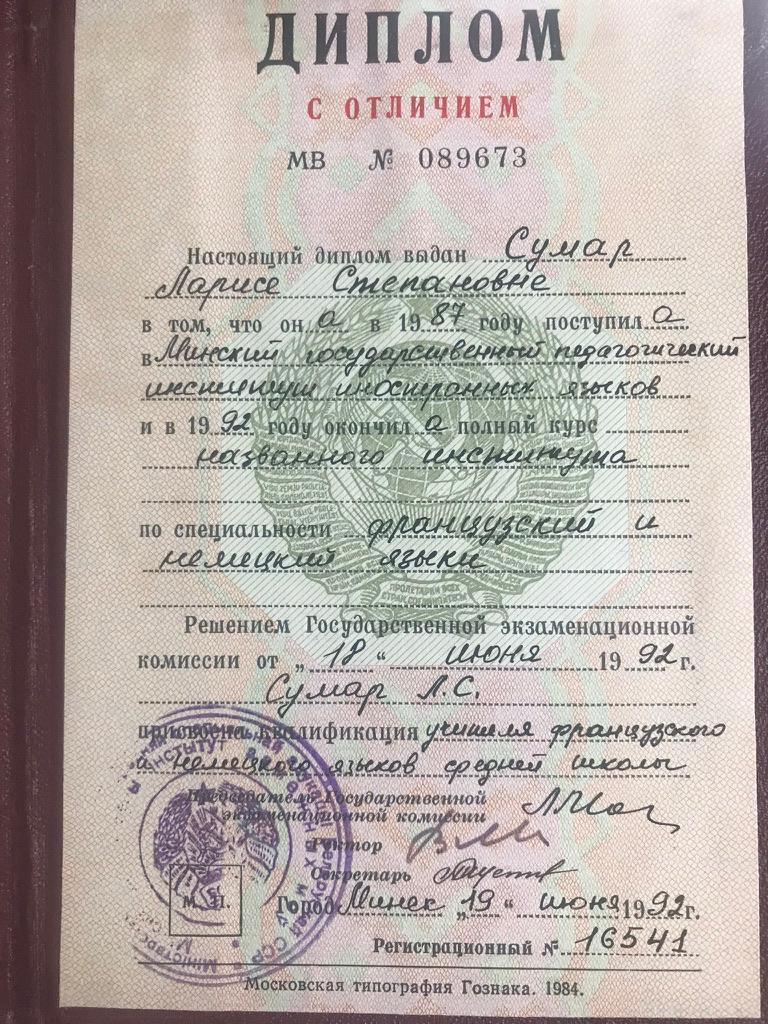 ДИПЛОМ
С ОТЛИЧИЕМ
МВ № 089673
Настоящий диплом выдан Сумар
Ларисе Степановне
в том, что он а в 1987 году поступил а
в Минский государственный педагогический
институт иностранных языков
и в 1992 году окончил а полный курс
названного института
по специальности французский и
немецкий языки
ПРОЛЕТАРИИ ВСЕХ
СТРАН, СОЕДИНЯЙТЕСЬ!
Решением Государственной экзаменационной
комиссии от „18“ июня 1992 г.
Сумар Л.С.
присвоена квалификация учителя французского
и немецкого языков средней школы
Председатель Государственной
экзаменационной комиссии
Ректор
Секретарь
М. П.
Город Минск „19“ июня 1992 г.
Регистрационный № 16541
Московская типография Гознака. 1984.